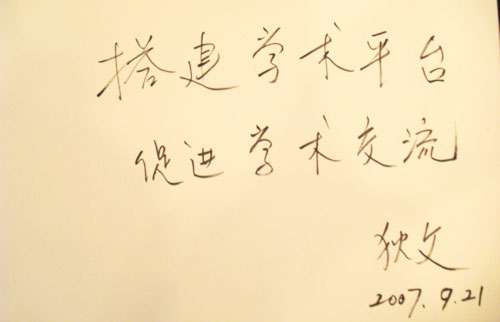 搭建学术平台
促进学术交流
狄文
2007.9.21